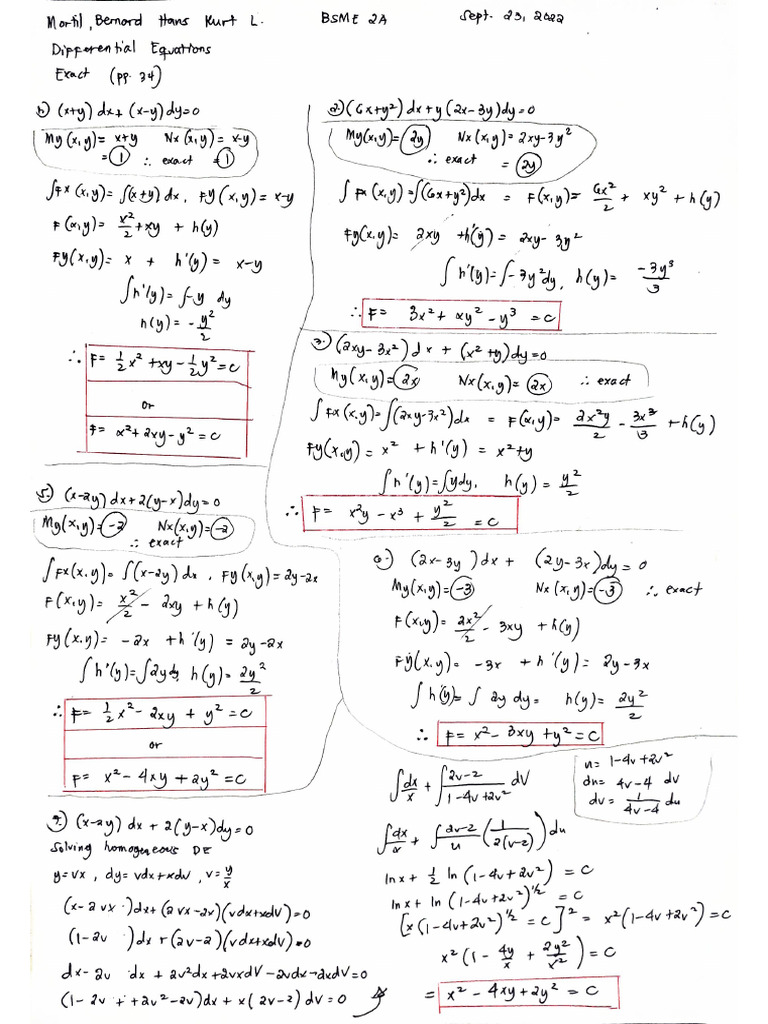 Martil, Bernard Hans Kurt L. BSME 2A Sept. 23, 2022
Differential Equations
Exact (pp. 34)
1.) (x+y) dx + (x-y) dy = 0
My(x,y) = x+y Nx(x,y) = x-y
= 1 ∴ exact = 1
∫Fx(x,y) = ∫(x+y) dx, Fy(x,y) = x-y
F(x,y) = x²/2 + xy + h(y)
Fy(x,y) = x + h'(y) = x-y
∫h'(y) = ∫-y dy
h(y) = -y²/2
∴ F = 1/2 x² + xy - 1/2 y² = C
or
F = x² + 2xy - y² = C
2.) (6x+y²) dx + y(2x-3y) dy = 0
My(x,y) = 2y Nx(x,y) = 2xy-3y²
∴ exact = 2y
∫Fx(x,y) = ∫(6x+y²)dx = F(x,y) = 6x²/2 + xy² + h(y)
Fy(x,y) = 2xy + h'(y) = 2xy - 3y²
∫h'(y) = ∫-3y²dy, h(y) = -3y³/3
∴ F = 3x² + xy² - y³ = C
3.) (2xy-3x²) dx + (x²+y)dy = 0
My(x,y) = 2x Nx(x,y) = 2x ∴ exact
∫Fx(x,y) = ∫(2xy-3x²)dx = F(x,y) = 2x²y/2 - 3x³/3 + h(y)
Fy(x,y) = x² + h'(y) = x²+y
∫h'(y) = ∫ydy, h(y) = y²/2
∴ F = x²y - x³ + y²/2 = C
5.) (x-2y) dx + 2(y-x)dy = 0
My(x,y) = -2 Nx(x,y) = -2
∴ exact
∫Fx(x,y) = ∫(x-2y) dx, Fy(x,y) = 2y-2x
F(x,y) = x²/2 - 2xy + h(y)
Fy(x,y) = -2x + h'(y) = 2y-2x
∫h'(y) = ∫2ydy, h(y) = 2y²/2
∴ F = 1/2 x² - 2xy + y² = C
or
F = x² - 4xy + 2y² = C
6.) (2x-3y) dx + (2y-3x)dy = 0
My(x,y) = -3 Nx(x,y) = -3 ∴ exact
F(x,y) = 2x²/2 - 3xy + h(y)
Fy(x,y) = -3x + h'(y) = 2y-3x
∫h'(y) = ∫2y dy = h(y) = 2y²/2
∴ F = x² - 3xy + y² = C
9.) (x-2y) dx + 2(y-x)dy = 0
Solving homogeneous DE
y=vx, dy=vdx+xdv, v=y/x
(x-2vx)dx + (2vx-2x)(vdx+xdv) = 0
(1-2v)dx + (2v-2)(vdx+xdv) = 0
dx-2v dx + 2v²dx + 2vxdv - 2vdx - 2xdv = 0
(1-2v + 2v²-2v)dx + x(2v-2)dv = 0
∫dx/x + ∫(2v-2)/(1-4v+2v²) dv
u = 1-4v+2v²
du = 4v-4 dv
dv = 1/(4v-4) du
∫dx/x + ∫(2v-2)/u (1/(2(v-2))) du
lnx + 1/2 ln(1-4v+2v²) = C
lnx + ln(1-4v+2v²)^1/2 = C
[x(1-4v+2v²)^1/2 = C]² = x²(1-4v+2v²) = C
x²(1 - 4y/x + 2y²/x²) = C
= x² - 4xy + 2y² = C